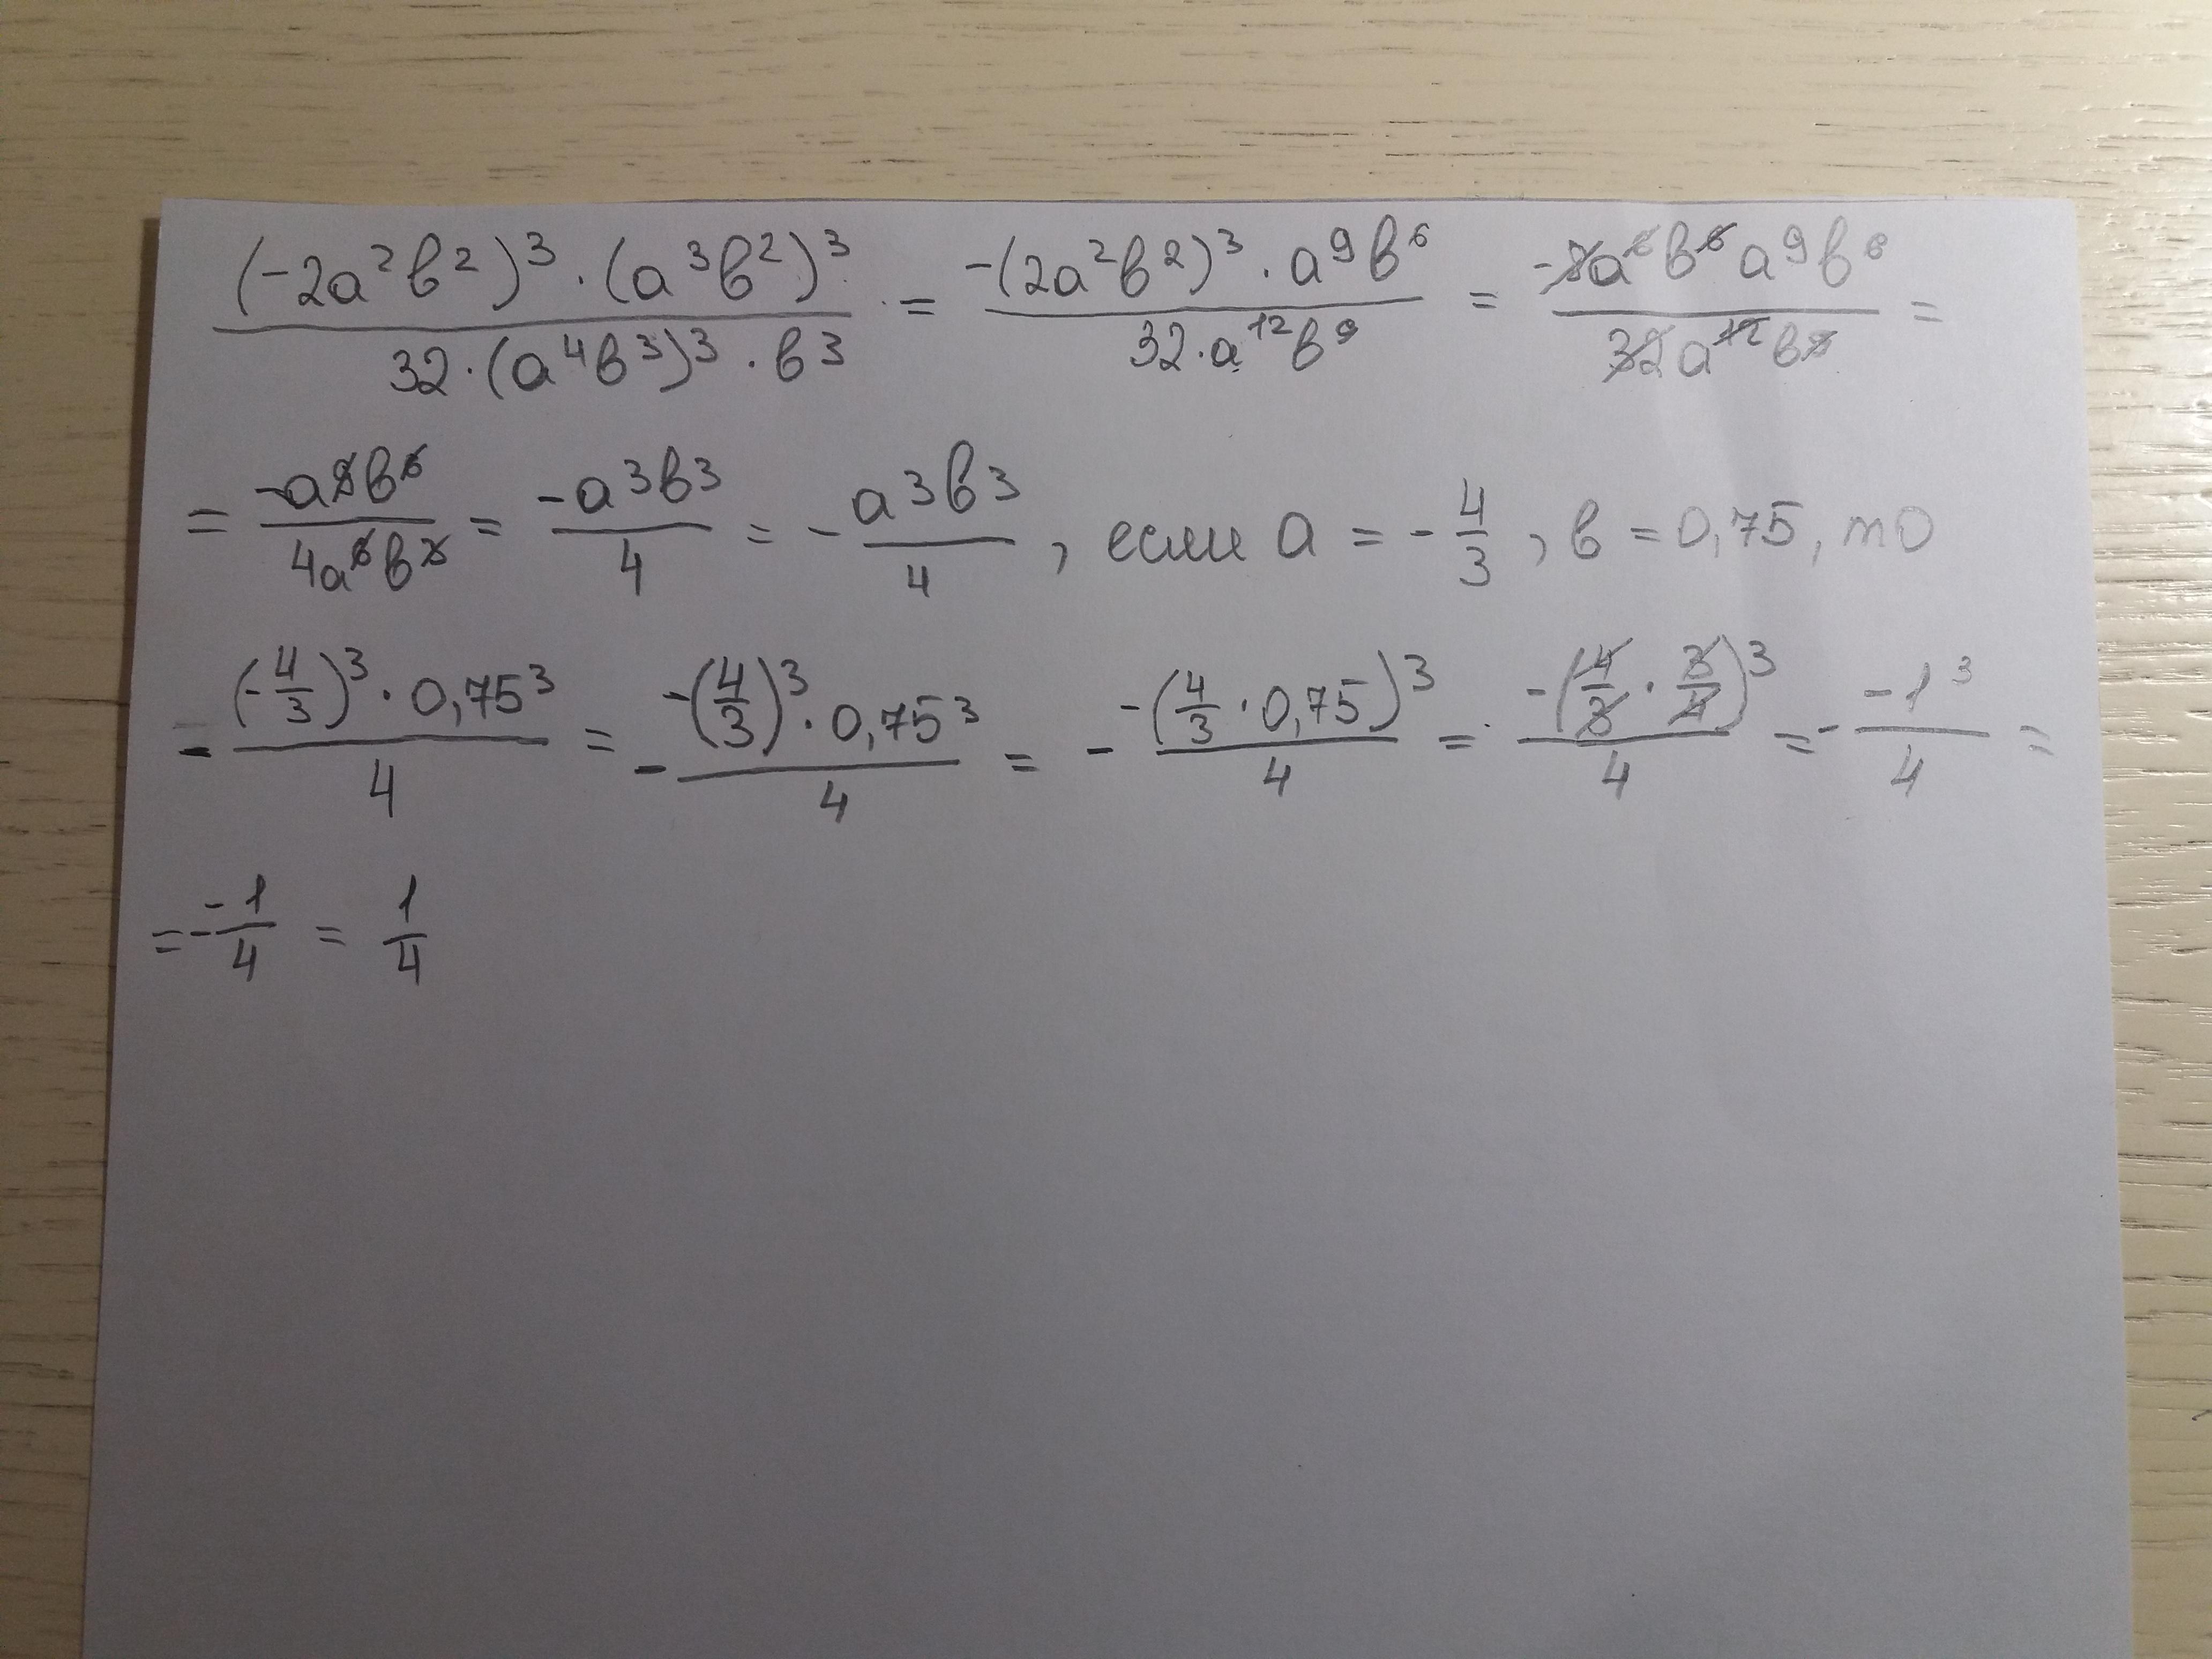 (-2a²b²)³ · (a³b²)³ / 32·(a⁴b³)³ · b³ = -(2a²b²)³ · a⁹b⁶ / 32·a¹²b⁹ = -8a⁶b⁶a⁹b⁶ / 32a¹²b⁹ =
= -a⁹b⁶ / 4a⁶b³ = -a³b³ / 4 = - a³b³ / 4 , если a = - 4/3 , b = 0,75, то
- (-4/3)³ · 0,75³ / 4 = - -(4/3)³ · 0,75³ / 4 = - -(4/3 · 0,75)³ / 4 = - -(4/3 · 3/4)³ / 4 = - -1³ / 4 =
= - -1/4 = 1/4